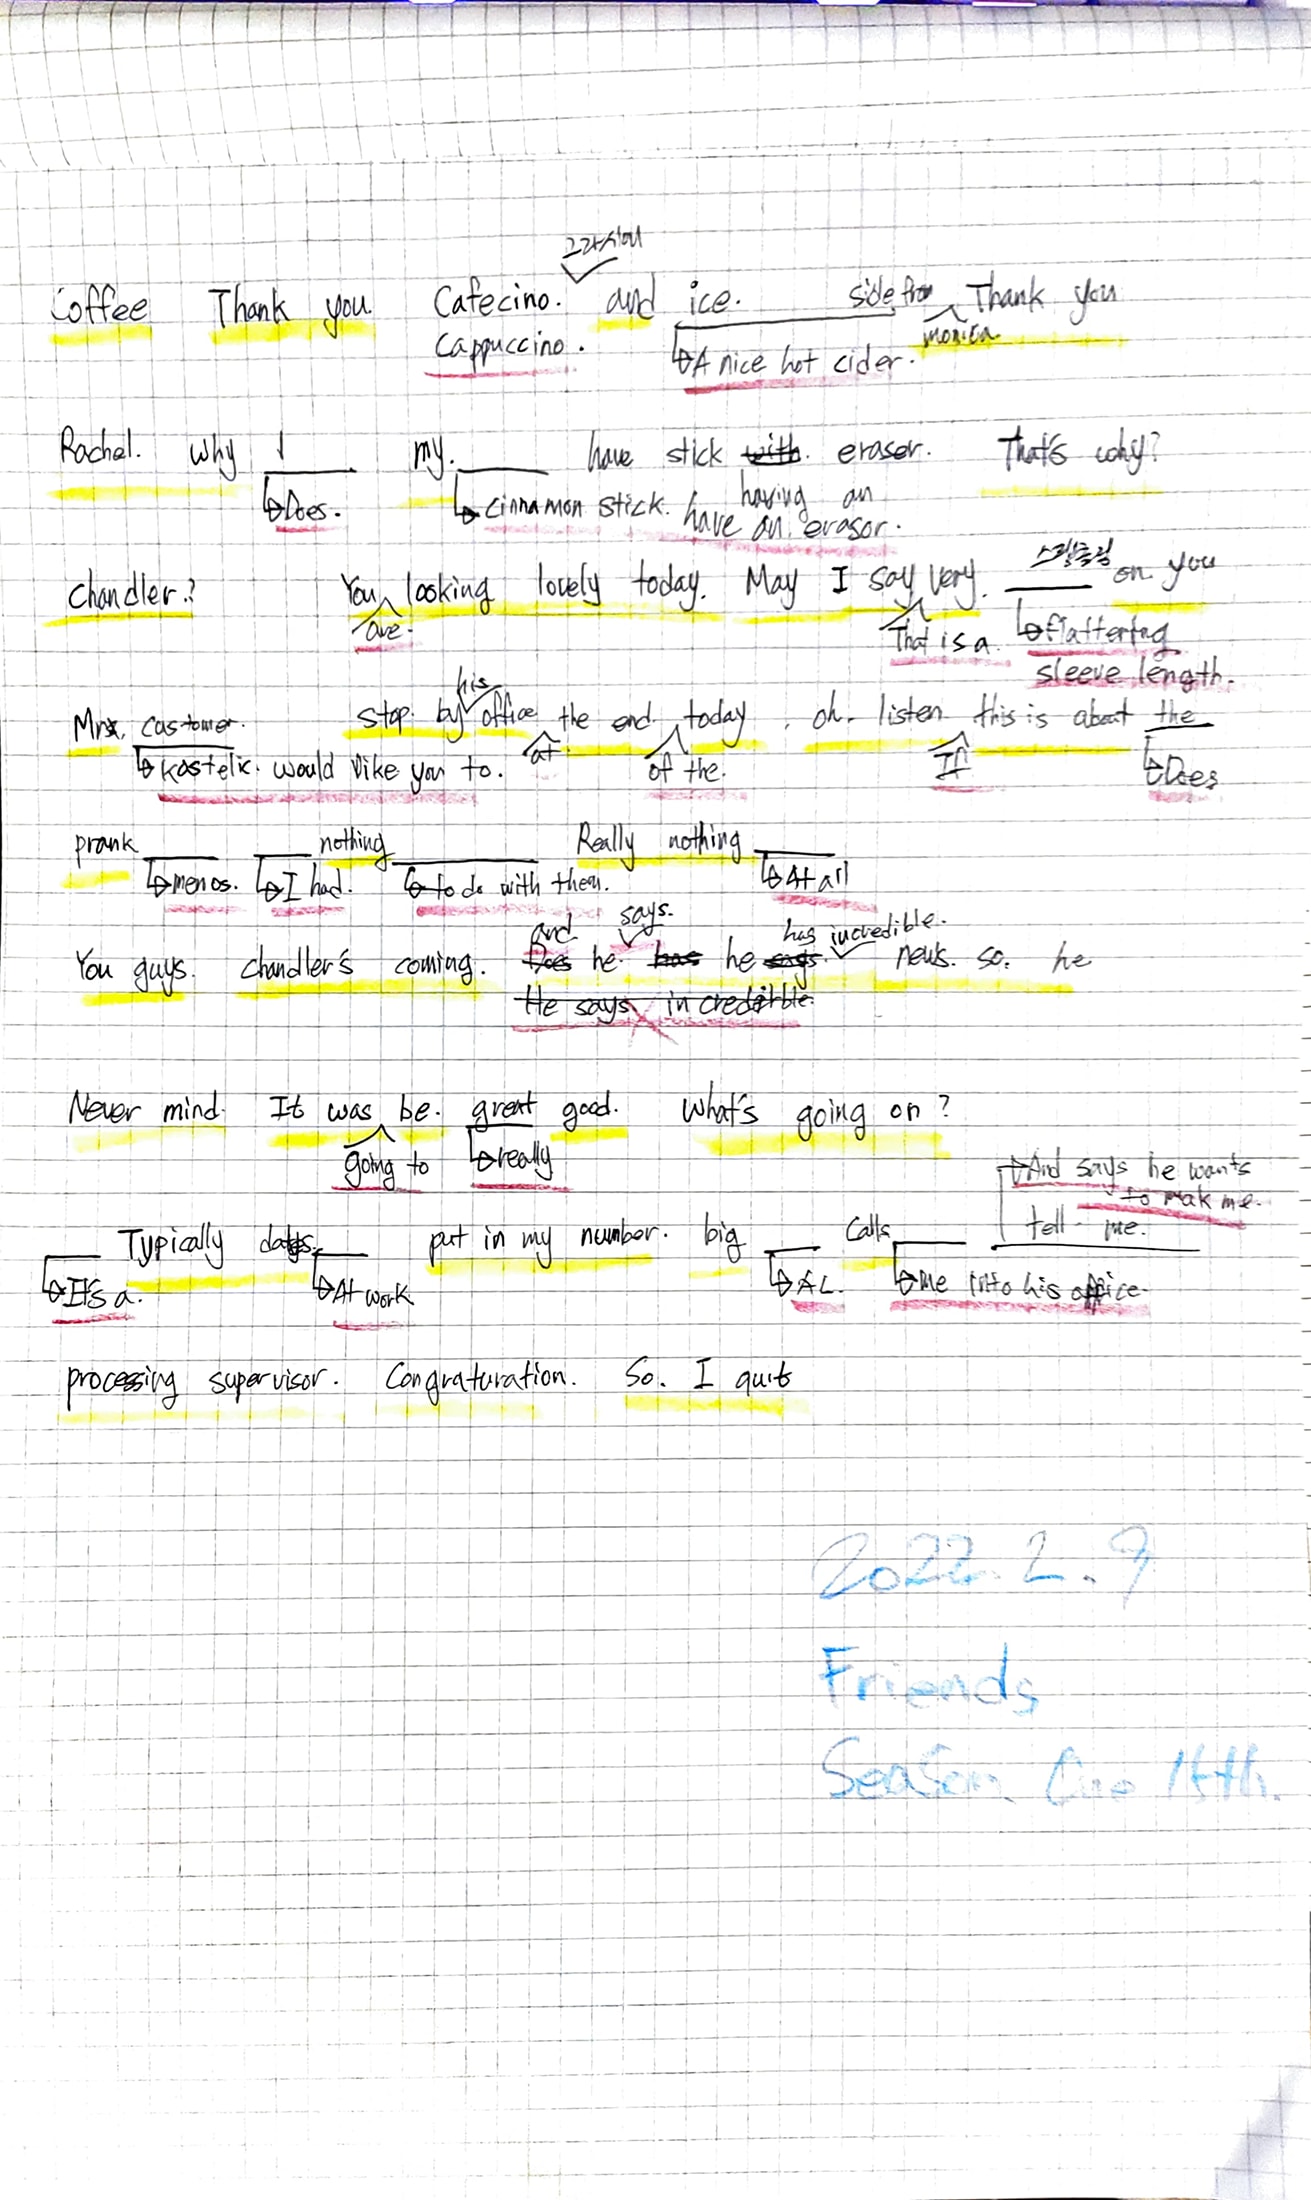 그라시에
Coffee Thank you Cafecino. and ice. side from Thank you
Cappuccino. A nice hot cider. monica
Rachel. why I my. have stick with. eraser. That's why?
Does. cinnamon stick. having an
have an erasor.
chandler? You looking lovely today. May I say very. on you
are. That is a. flattering
sleeve length.
his
Mrs. customer. stop by office the end today, oh. listen this is about the
kostelic. would like you to. at of the. If Does
prank nothing Really nothing
memos. I had. to do with them. At all
and says. has incredible.
You guys. chandler's coming. Does he has he says news. so. he
He says incredible.
Never mind. It was be. great good. what's going on?
going to really
And says he wants
to mak me.
Typically dates. put in my number. big Calls tell me.
It's a. At work AL. Me into his office.
processing supervisor. Congraturation. So. I quit
2022. 2. 9
Friends
Season One 15th.